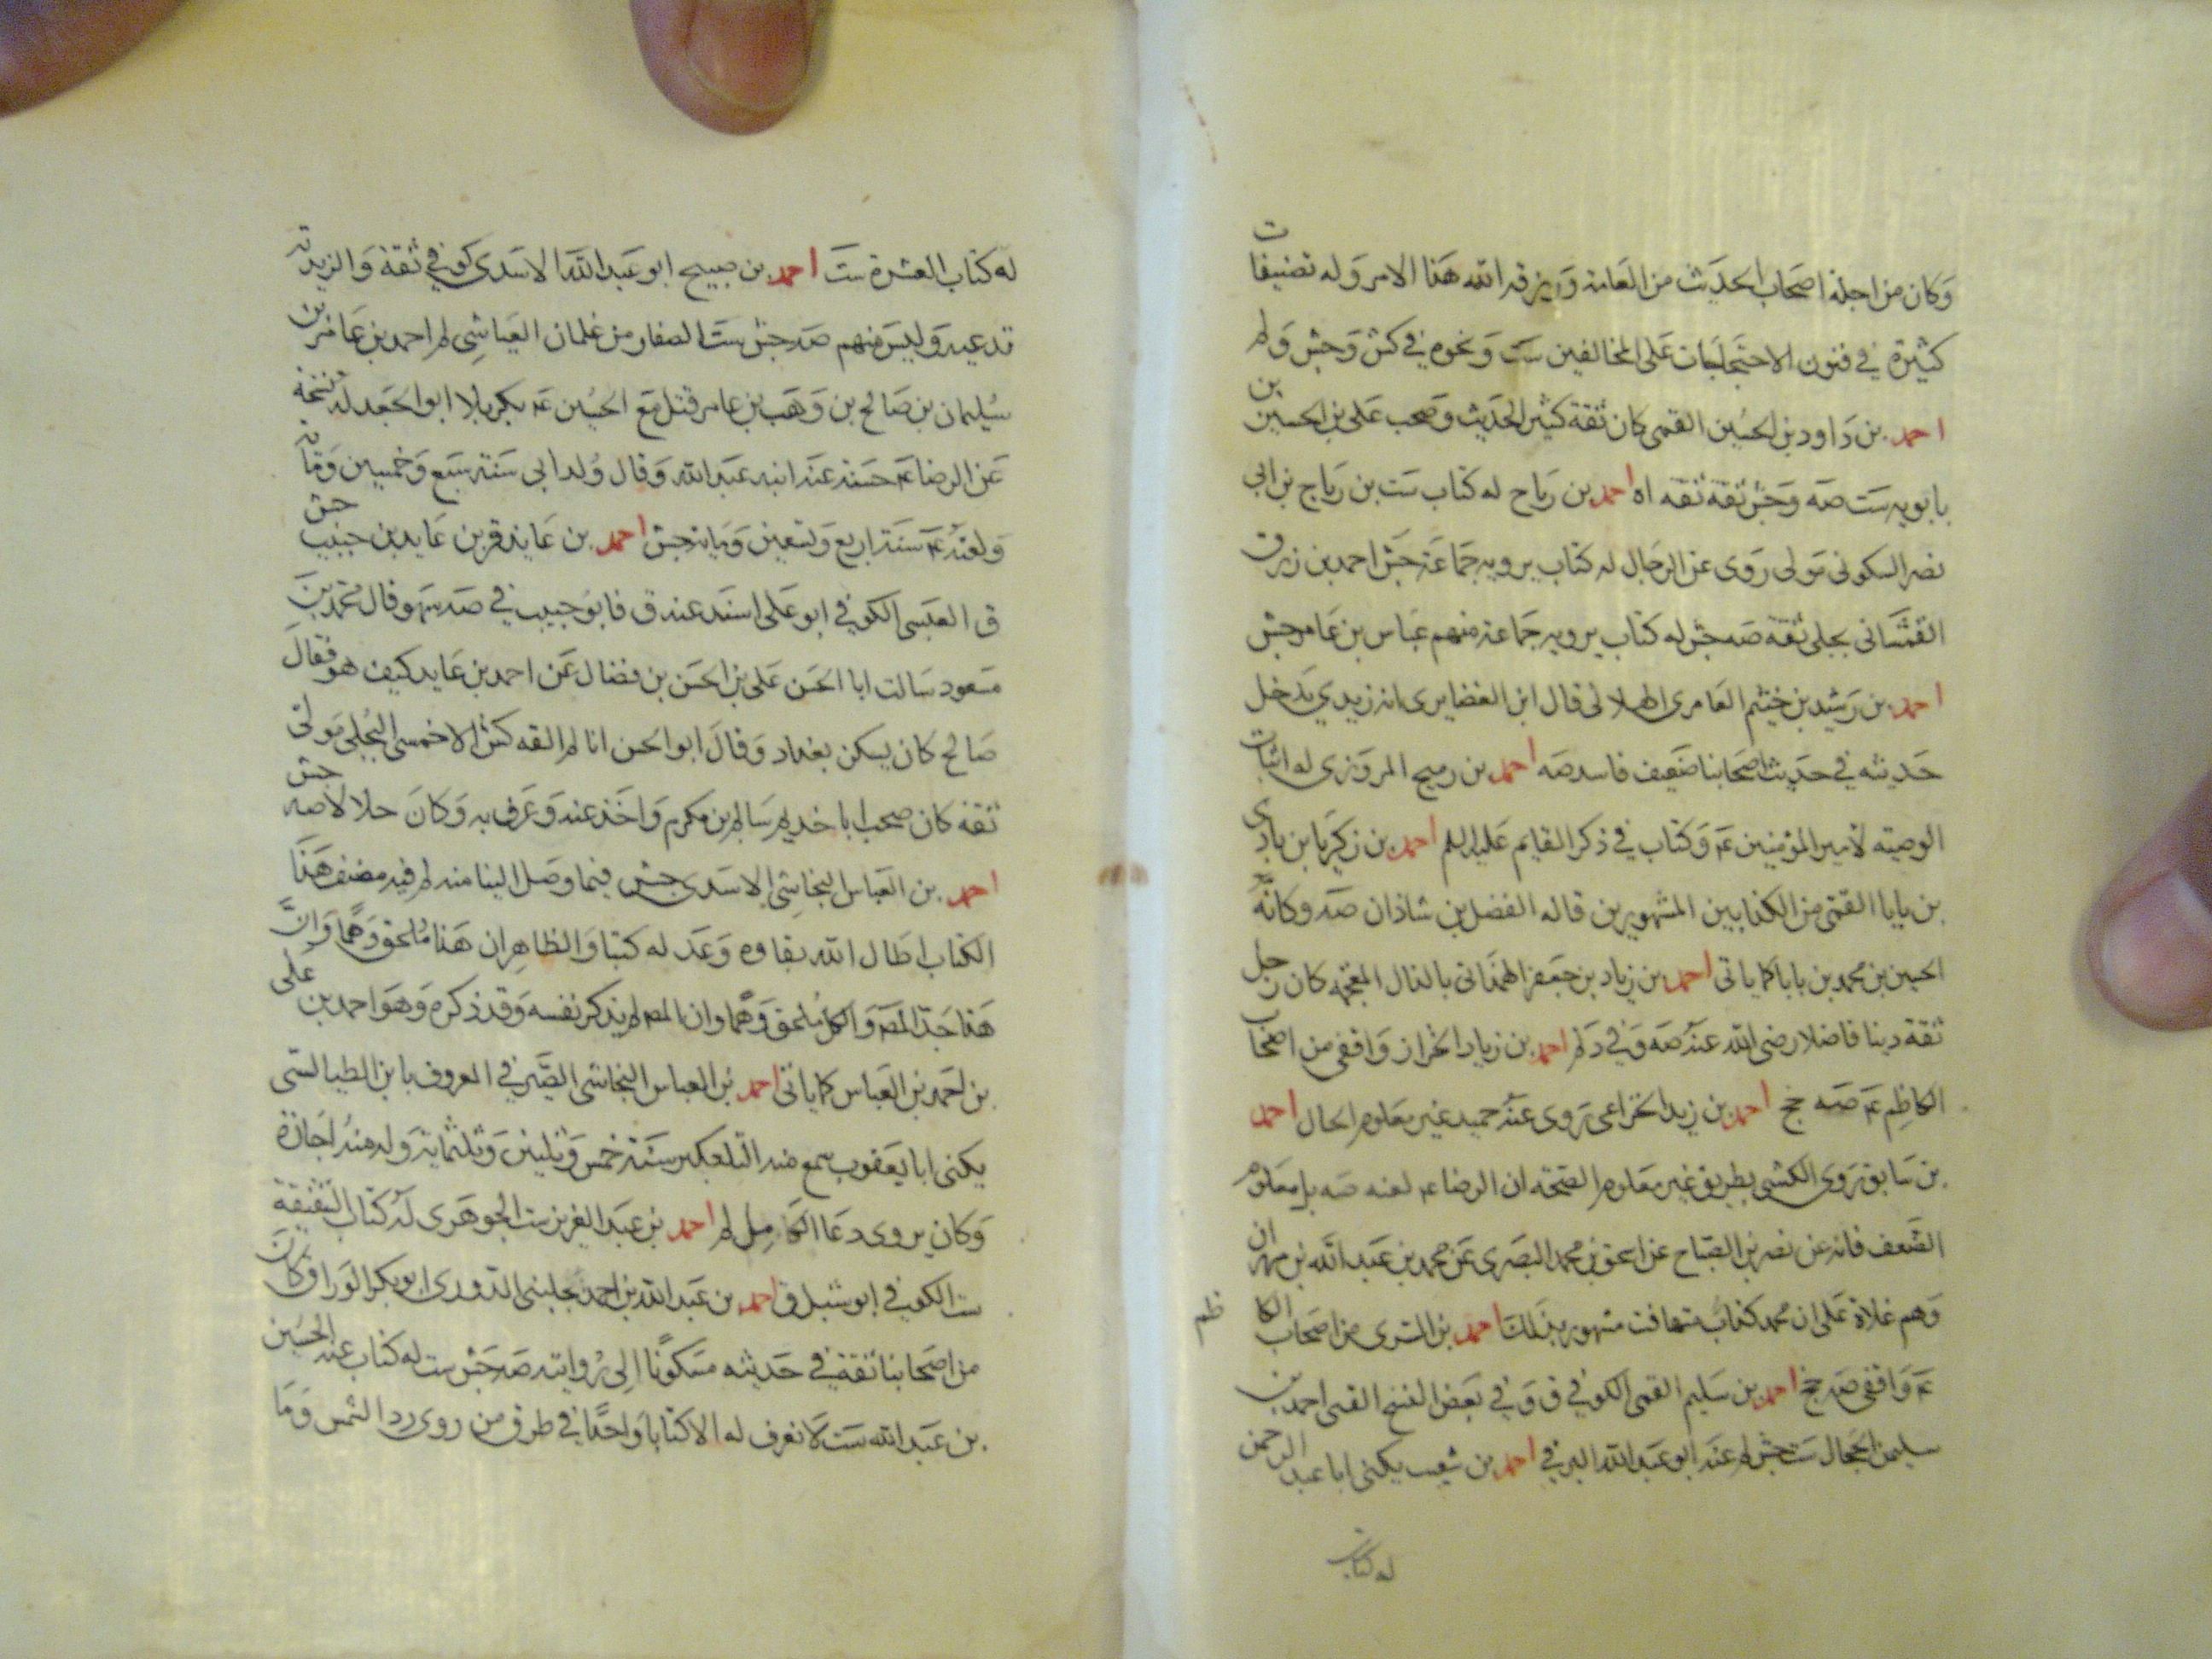 وكان من اجلة اصحاب الحديث من العامة ورزقه الله هذا الامر وله تصنيفات
كثيرة في فنون الاحتجاجات على المخالفين ست ونحوه في كش وجش ولم
احمد بن داود بن الحسين القمى كان ثقة كثير الحديث وصحب على بن الحسين بن
بابويه ست صه وجش ثقة ثقه اه احمد بن رباح له كتاب ست بن رباح بن ابى
نصر السكونى مولى روى عن الرجال له كتاب يرويه جماعة جش احمد بن زرق
الغمشانى بجلى ثقة صه جش له كتاب يرويه جماعة منهم عباس بن عامر جش
احمد بن رشيد بن خيثم العامرى الهلالى قال ابن الغضايرى انه زيدي يدخل
حديثه في حديث اصحابنا ضعيف فاسد صه احمد بن رميح المروزى له اثبات
الوصيه لامير المؤمنين عم وكتاب في ذكر القايم عليه السلم احمد بن زكريا بن بابا
بن بابا القمى من الكذابين المشهورين قاله الفضل بن شاذان صه وكانه
الحسين بن محمد بن بابا كما ياتى احمد بن زياد بن جعفر الهمذانى بالذال المعجمه كان رجل
ثقة دينا فاضلا رضى الله عنه صه وفي د لم احمد بن زياد الخزاز واقفى من اصحاب
الكاظم عم صه جخ احمد بن زيد الخزاعى روى عنه حميد غير معلوم الحال احمد
بن سابق روى الكشى بطريق غير معلوم الصحة ان الرضا عم لعنه صه بل معلوم
الضعف فانه عن نصر بن الصباح عن اسحق بن محمد البصرى عن محمد بن عبد الله بن مهران
وهم غلاة على ان محمد كذاب متهافت مشهور بذلك احمد بن السرى من اصحاب الكاظم
عم واقفى صه جخ احمد بن سليم القمى الكوفي ق وفي بعض النسخ القبى احمد بن
سليمن الحجال ست جش لم عنه ابو عبد الله البرقي احمد بن شعيب يكنى ابا عبد الرحمن
له كتاب
له كتاب العشرة ست احمد بن صبيح ابو عبد الله الاسدى كوفي ثقة والزيدية
تدعيه وليس منهم صه جش ست الصفار من غلمان العياشى لم احمد بن عامر بن
سليمان بن صالح بن وهب بن عامر قتل مع الحسين عم بكربلا ابو الجعد له نسخة
عن الرضا عم حسنة عند ابنه عبد الله وقال ولد ابى سنة سبع وخمسين ومائة
ولقنه عم سنة اربع وتسعين ومائة جش احمد بن عايذ قر بن عايذ بن حبيب جش
ق العبسى الكوفي ابو على اسند عنه ق فابو حبيب في صه سهو قال محمد بن
مسعود سالت ابا الحسن على بن الحسن بن فضال عن احمد بن عايد كيف هو فقال
صالح كان يسكن بغداد وقال ابو الحسن انا لم القه كش الاحمسى البجلى مولى
ثقة كان صحب ابا خديجه سالم بن مكرم واخذ عنه وعرف به وكان حلالا صه جش
احمد بن العباس النجاشى الاسدى جش فيما وصل الينا منه لم فيه مصنف هذا
الكتاب اطال الله بقاوه وعد له كتبا والظاهر ان هذا ملحق وهما وان
هذا جد المصه والكل ملحق وهما وان المصه لم يذكر نفسه وقد ذكره وهو احمد بن على
بن احمد بن العباس كما ياتى احمد بن العباس النجاشى الصيرفي المعروف بابن الطيالسى
يكنى ابا يعقوب سمع منه التلعكبرى سنة خمس وثلثين وثلثماية وله منه اجازة
وكان يروى دعا الكامل لم احمد بن عبد العزيز ست الجوهرى له كتاب السقيفة
ست الكوفي ابو شبل ق احمد بن عبد الله بن احمد بن جلين الدورى ابو بكر الوراق كان
من اصحابنا ثقة في حديثه مسكونا الى روايته صه جش ست له كتاب عنه الحسين
بن عبد الله ست لا نعرف له الا كتابا واحدا في طرق من روى رد الشمس وما